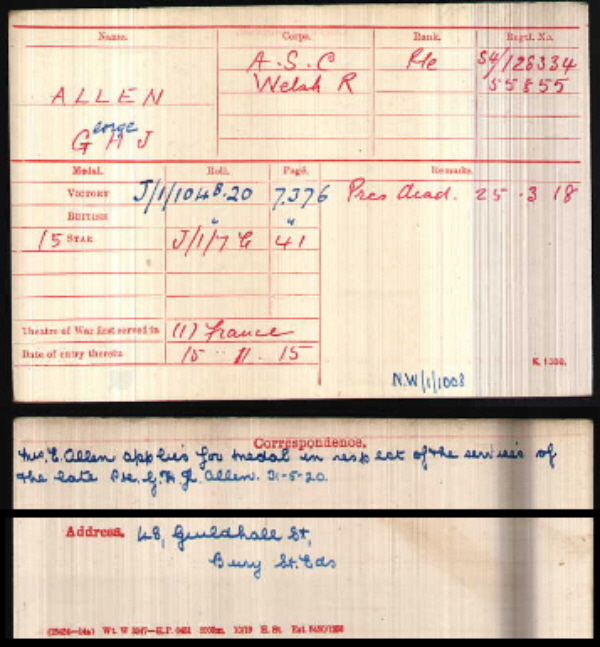 Name. Corps. Rank. Regtl. No.
A.S.C Pte S4/128334
Welsh R 55855
ALLEN
George
G H J
Medal. Roll. Page. Remarks.
VICTORY J/1/104B.20 7376 Pres dead. 25.3 18
BRITISH " "
15 STAR J/1/7 41
Theatre of War first served in (1) France
Date of entry therein 15. 11. 15
N.W/1/1008
K. 1380.
Correspondence.
Mrs. E. Allen applies for medal in respect of the services of
the late Pte. G. H. J. Allen. 31-5-20.
Address. 48, Guildhall St,
Bury St. Eds